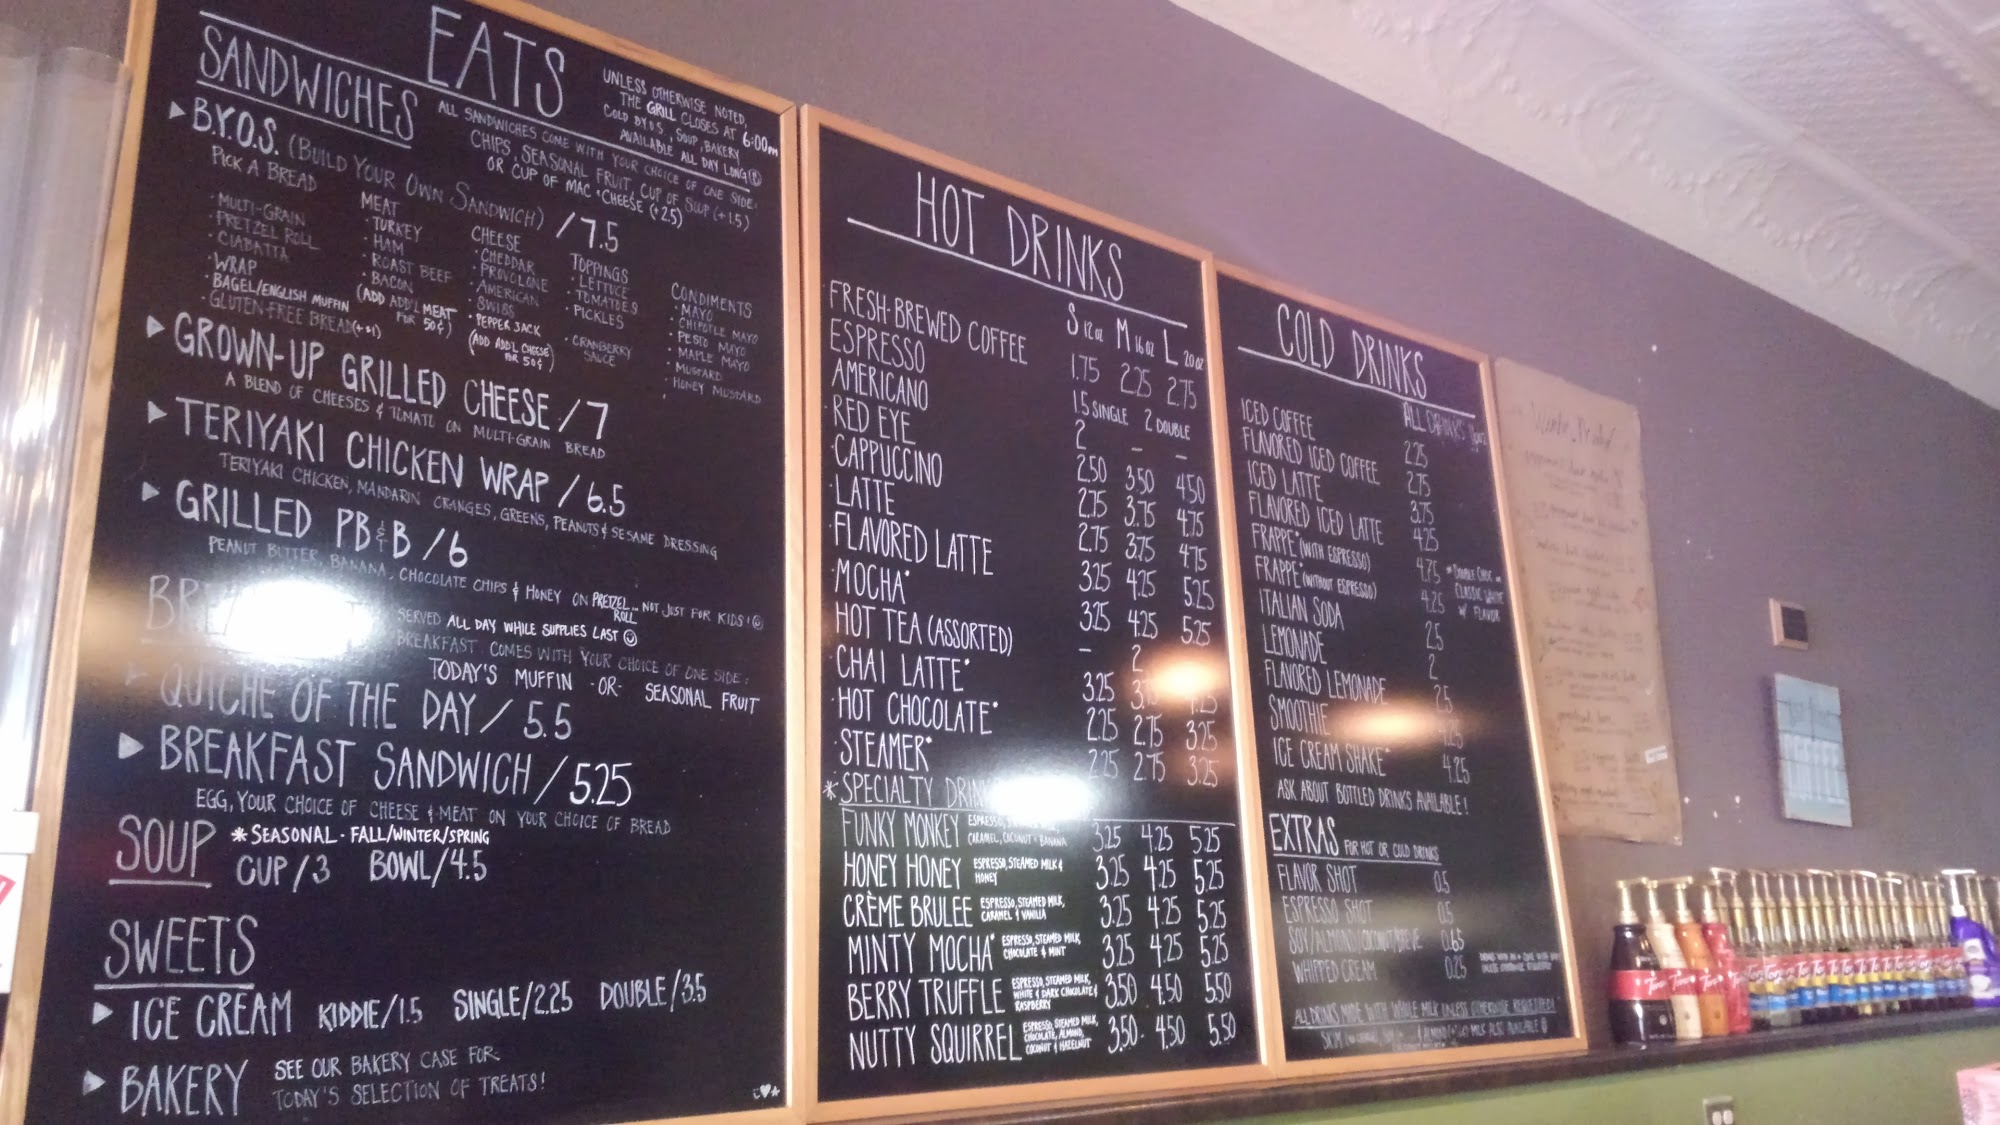 EATS
UNLESS OTHERWISE NOTED,
THE GRILL CLOSES AT 6:00PM
COLD BYOS, SOUP, BAKERY
AVAILABLE ALL DAY LONG
SANDWICHES
ALL SANDWICHES COME WITH YOUR CHOICE OF ONE SIDE:
CHIPS, SEASONAL FRUIT, CUP OF SOUP (+1.5)
OR CUP OF MAC + CHEESE (+2.5)
B.Y.O.S. (BUILD YOUR OWN SANDWICH) /7.5
PICK A BREAD
· MULTI-GRAIN
· PRETZEL ROLL
· CIABATTA
· WRAP
· BAGEL/ENGLISH MUFFIN
· GLUTEN-FREE BREAD (+$1)
MEAT
· TURKEY
· HAM
· ROAST BEEF
· BACON
(ADD ADD'L MEAT
FOR 50¢)
CHEESE
· CHEDDAR
· PROVOLONE
· AMERICAN
· SWISS
· PEPPER JACK
(ADD ADD'L CHEESE
FOR 50¢)
TOPPINGS
· LETTUCE
· TOMATOES
· PICKLES
· CRANBERRY
SAUCE
CONDIMENTS
· MAYO
· CHIPOTLE MAYO
· PESTO MAYO
· MAPLE MAYO
· MUSTARD
· HONEY MUSTARD
GROWN-UP GRILLED CHEESE /7
A BLEND OF CHEESES & TOMATO ON MULTI-GRAIN BREAD
TERIYAKI CHICKEN WRAP /6.5
TERIYAKI CHICKEN, MANDARIN ORANGES, GREENS, PEANUTS & SESAME DRESSING
GRILLED PB&B /6
PEANUT BUTTER, BANANA, CHOCOLATE CHIPS & HONEY ON PRETZEL ROLL... NOT JUST FOR KIDS!
SERVED ALL DAY, WHILE SUPPLIES LAST
BREAKFAST COMES WITH YOUR CHOICE OF ONE SIDE:
TODAY'S MUFFIN -OR- SEASONAL FRUIT
QUICHE OF THE DAY / 5.5
BREAKFAST SANDWICH / 5.25
EGG, YOUR CHOICE OF CHEESE & MEAT ON YOUR CHOICE OF BREAD
SOUP *SEASONAL - FALL/WINTER/SPRING
CUP/3 BOWL/4.5
SWEETS
ICE CREAM KIDDIE/1.5 SINGLE/2.25 DOUBLE/3.5
BAKERY SEE OUR BAKERY CASE FOR
TODAY'S SELECTION OF TREATS!
HOT DRINKS
S 12oz M 16oz L 20oz
· FRESH-BREWED COFFEE 1.75 2.25 2.75
· ESPRESSO 1.5 SINGLE 2 DOUBLE
· AMERICANO 2 - -
· RED EYE 2.50 3.50 4.50
· CAPPUCCINO 2.75 3.75 4.75
· LATTE 2.75 3.75 4.75
· FLAVORED LATTE 3.25 4.25 5.25
· MOCHA* 3.25 4.25 5.25
· HOT TEA (ASSORTED) - 2
· CHAI LATTE* 3.25
· HOT CHOCOLATE* 2.25 2.75 3.25
· STEAMER* 2.25 2.75 3.25
*SPECIALTY
FUNKY MONKEY ESPRESSO, CARAMEL, COCONUT + BANANA 3.25 4.25 5.25
HONEY HONEY ESPRESSO, STEAMED MILK & HONEY 3.25 4.25 5.25
CRÈME BRULEE ESPRESSO, STEAMED MILK, CARAMEL & VANILLA 3.25 4.25 5.25
MINTY MOCHA* ESPRESSO, STEAMED MILK, CHOCOLATE & MINT 3.25 4.25 5.25
BERRY TRUFFLE ESPRESSO, STEAMED MILK, WHITE & DARK CHOCOLATE & RASPBERRY 3.50 4.50 5.50
NUTTY SQUIRREL ESPRESSO, STEAMED MILK, CHOCOLATE, ALMOND, COCONUT & HAZELNUT 3.50 4.50 5.50
COLD DRINKS
ALL DRINKS
ICED COFFEE 2.25
FLAVORED ICED COFFEE 2.75
ICED LATTE 3.75
FLAVORED ICED LATTE 4.25
FRAPPE* (WITH ESPRESSO) 4.75
FRAPPE* (WITHOUT ESPRESSO) 4.25
*DOUBLE CHOC OR
CLASSIC WHITE
W/ FLAVOR
ITALIAN SODA 2.5
LEMONADE 2
FLAVORED LEMONADE 2.5
SMOOTHIE 4.25
ICE CREAM SHAKE* 4.25
ASK ABOUT BOTTLED DRINKS AVAILABLE!
EXTRAS FOR HOT OR COLD DRINKS
FLAVOR SHOT 0.5
ESPRESSO SHOT 0.5
SOY/ALMOND/COCONUT/BREVE 0.65
WHIPPED CREAM 0.25
ALL DRINKS MADE WITH WHOLE MILK UNLESS OTHERWISE REQUESTED!
MILK ALSO AVAILABLE